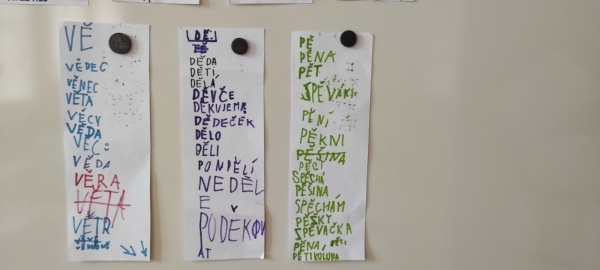 VĚ
VĚDEC
VĚNEC
VĚTA
VĚCY
VĚDA
VĚC
VĚDA
VĚRA
VĚTA
VĚTR
DĚ
DĚDA
DĚTI
DĚLÁ
DĚVČE
DĚKUJEMĚ
DĚDEČEK
DĚLO
DĚLÍ
PONDĚLÍ
NEDĚL
E
PODĚKOV
AT
PĚ
PĚNA
PĚT
PĚNÍ
PĚKNI
PĚŠINA
PĚCI
SPĚCHÁ
PĚŠINA
SPĚCHÁM
PĚŠKY
SPĚVAČKA
PĚNA,
PĚTIKORUNA